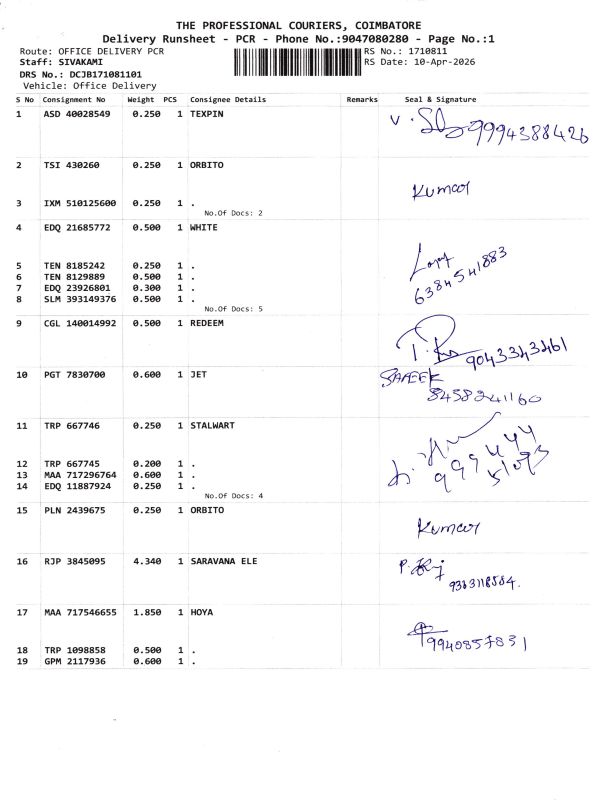 THE PROFESSIONAL COURIERS, COIMBATORE
Delivery Runsheet - PCR - Phone No.:9047080280 - Page No.:1
Route: OFFICE DELIVERY PCR RS No.: 1710811
Staff: SIVAKAMI RS Date: 10-Apr-2026
DRS No.: DCJB171081101
Vehicle: Office Delivery
S No Consignment No Weight PCS Consignee Details Remarks Seal & Signature
1 ASD 40028549 0.250 1 TEXPIN
9994388426
2 TSI 430260 0.250 1 ORBITO
Kumar
3 IXM 510125600 0.250 1 .
No.Of Docs: 2
4 EDQ 21685772 0.500 1 WHITE
5 TEN 8185242 0.250 1 .
6 TEN 8129889 0.500 1 .
7 EDQ 23926801 0.300 1 .
8 SLM 393149376 0.500 1 .
6384541883
No.Of Docs: 5
9 CGL 140014992 0.500 1 REDEEM
9043343461
10 PGT 7830700 0.600 1 JET
SAFEEK
8458241160
11 TRP 667746 0.250 1 STALWART
12 TRP 667745 0.200 1 .
13 MAA 717296764 0.600 1 .
14 EDQ 11887924 0.250 1 .
No.Of Docs: 4
15 PLN 2439675 0.250 1 ORBITO
Kumar
16 RJP 3845095 4.340 1 SARAVANA ELE
9363118584.
17 MAA 717546655 1.850 1 HOYA
9940857831
18 TRP 1098858 0.500 1 .
19 GPM 2117936 0.600 1 .